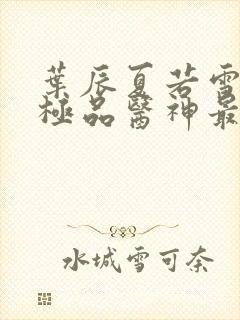 葉辰夏若雪
極品醫神最
水城雪可奈